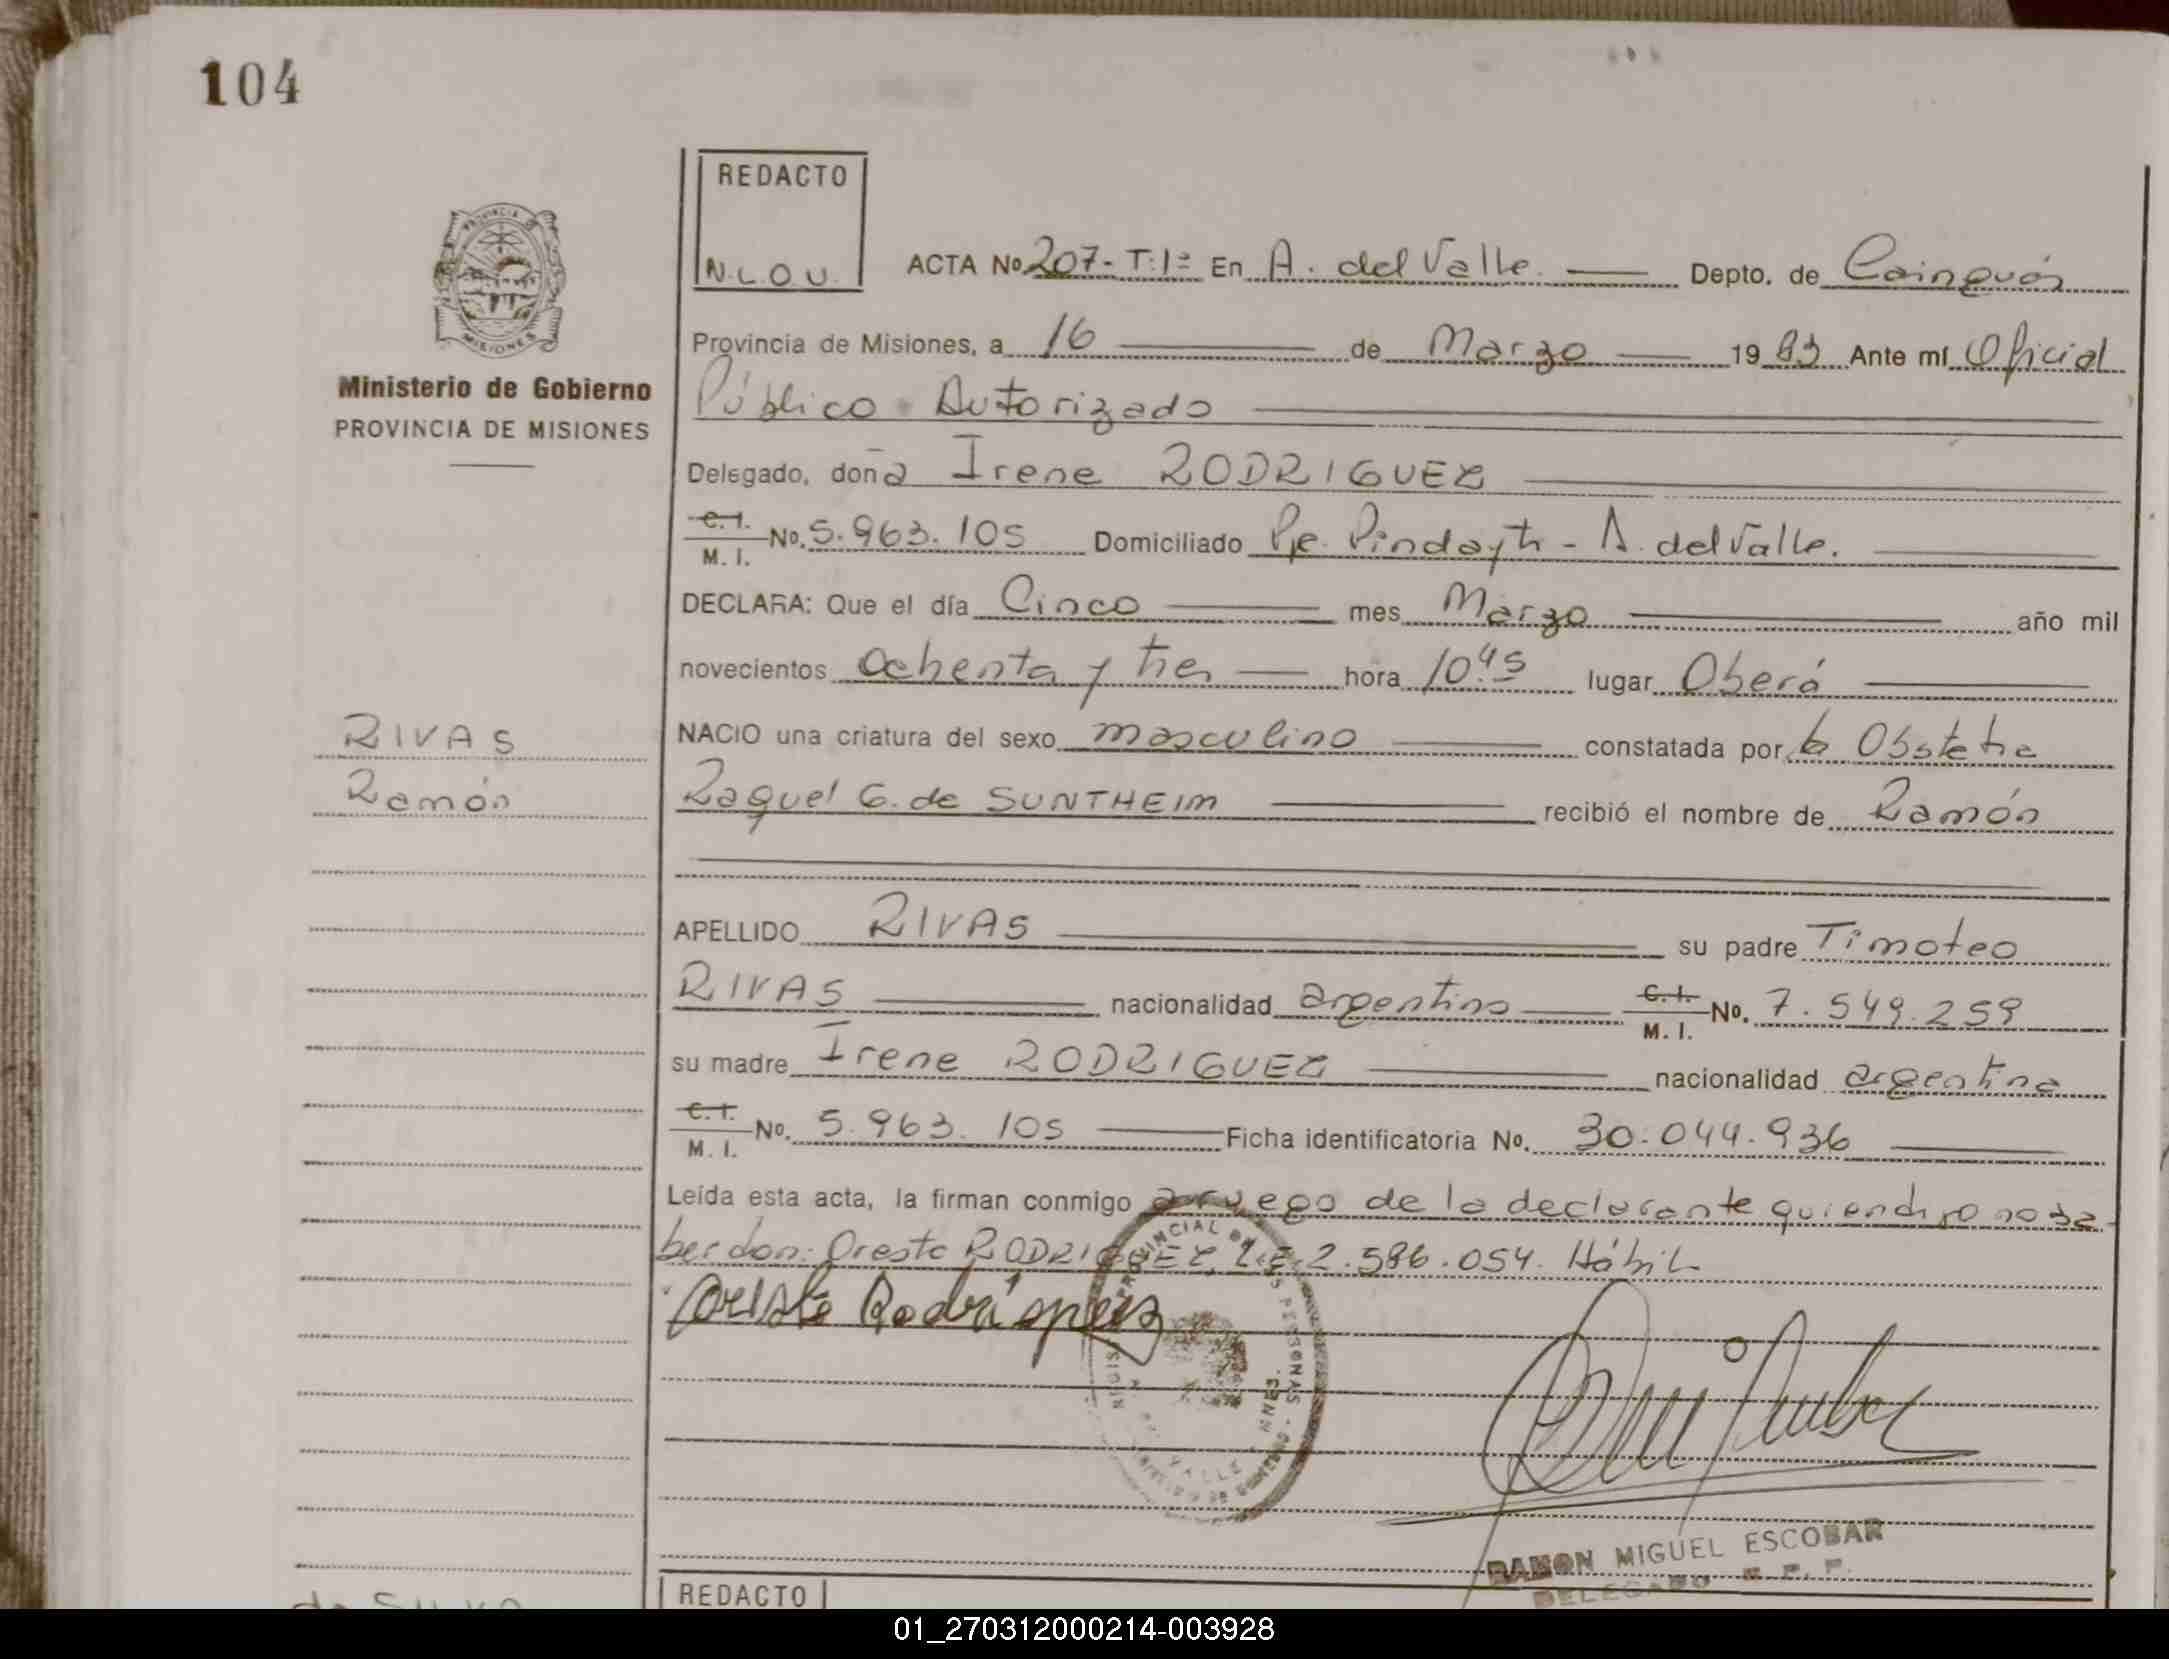 104
REDACTO
N.L.O.U.
PROVINCIA
MISIONES
Ministerio de Gobierno
PROVINCIA DE MISIONES
ACTA No. 207- T:1º En A. del Valle. Depto. de Cainguás
Provincia de Misiones, a 16 de Marzo 1983 Ante mí Oficial
Público Autorizado
Delegado, doña Irene RODRIGUEZ
C. I. M. I. No. 5.963.105 Domiciliado Pje. Pindayti - A. del Valle.
DECLARA: Que el día Cinco mes Marzo año mil
novecientos Ochenta y tres hora 10.45 lugar Oberá
NACIO una criatura del sexo masculino constatada por la Obstetra
Raquel G. de SUNTHEIM recibió el nombre de Ramón
RIVAS
Ramón
APELLIDO RIVAS su padre Timoteo
RIVAS nacionalidad argentino C. I. M. I. No. 7.549.259
su madre Irene RODRIGUEZ nacionalidad argentina
C. I. M. I. No. 5.963.105 Ficha identificatoria No. 30.044.936
Leída esta acta, la firman conmigo a ruego de la declarante quien dijo no sa-
ber don: Oreste RODRIGUEZ, L.E. 2.586.054. Hábil
Oreste Rodriguez
RAMON MIGUEL ESCOBAR
DELEGADO
REDACTO
01_270312000214-003928